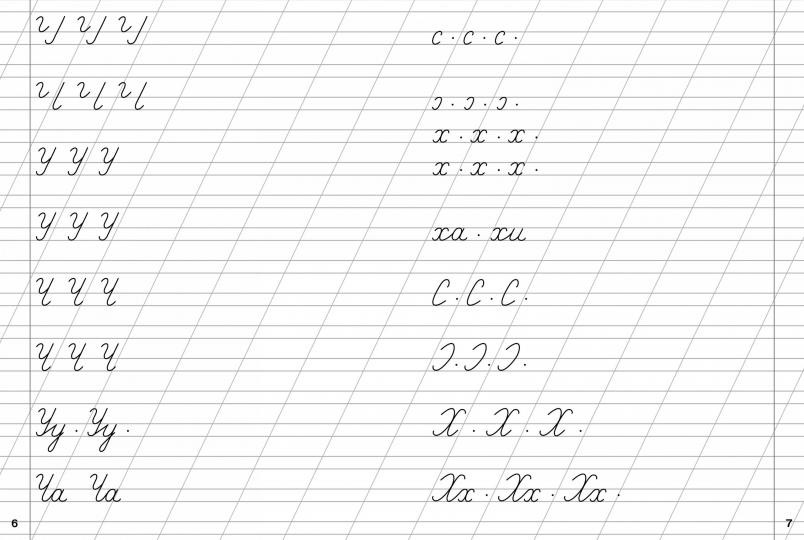 У У У
У У У
Ч Ч Ч
Ч Ч Ч
Уу · Уу ·
Ча Ча
6
с · с · с ·
х · х · х ·
х · х · х ·
ха · хи
С · С · С ·
Х · Х · Х ·
Хх · Хх · Хх ·
7